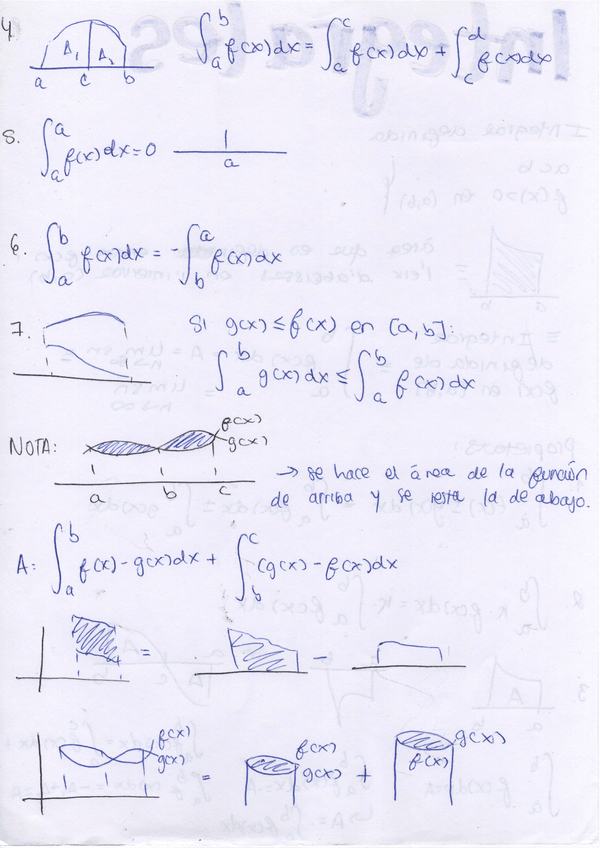 4. A₁ A₂ a c b ∫_a^b f(x)dx = ∫_a^c f(x)dx + ∫_c^d f(x)dx
5. ∫_a^a f(x)dx = 0 a
6. ∫_a^b f(x)dx = -∫_b^a f(x)dx
7. Si g(x) ≤ f(x) en [a,b]:
∫_a^b g(x)dx ≤ ∫_a^b f(x)dx
NOTA: f(x) g(x)
a b c
→ se hace el área de la función
de arriba y se resta la de abajo.
A: ∫_a^b f(x) - g(x)dx + ∫_b^c (g(x) - f(x)dx
= -
f(x) g(x) = f(x) g(x) + g(x) f(x)